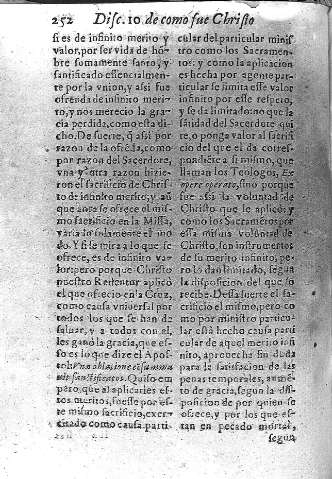 252 Disc. 10. de como fue Christo
si es de infinito merito y
valor, por ser vida de hõ-
bre somamente santo, y
santificado essencialmen-
te por la vnion, y assi fue
ofrenda de infinito meri-
to, y nos merecio la gra-
cia perdida, como esta di-
cho. De suerte, q̃ assi por
razon de la ofrẽda, como
por razon del Sacerdote,
vna y otra razon hizie-
ron el sacrificio de Chris-
to de infinito merito, y aũ
que aora se ofrece el mis-
mo sacrificio en la Missa,
varia solamente el mo
do. Y si se mira a lo que se
ofrece, es de infinito va-
lor: pero porque Christo
nuestro Redentor aplicó
el que ofrecio en la Cruz,
como causa vniuersal por
todos los que se han de
saluar, y a todos con el,
les ganò la gracia, que es-
so es lo que dize el Apos-
tol: Vna oblatione consumma
uit sanctificatos. Quiso em
pero, que al aplicarles es-
sos meritos, fuesse por es-
te mismo sacrificio, exer-
citado como causa parti-
cular del particular minis
tro como los Sacramen-
tos: y como la aplicacion
es hecha por agente par-
ticular se limita esse valor
infinito por esse respeto,
y se da limitado: no que la
sãtidad del Sacerdote qui
te, o ponga valor al sacrifi
cio del que el da corres-
pondiẽte a si mismo, que
llaman los Teologos, Ex
opere operato, sino porque
fue assi la voluntad de
Christo que le aplicó: y
como los Sacramẽtos por
esta misma voluntad de
Christo, son instrumentos
de su merito infinito, pe-
ro lo dan limitado, segũ
la disposicion del que lo
recibe. Dessa suerte el sa-
crificio el mismo, pero co
mo por ministro particu-
lar està hecho causa parti
cular de aquel merito infi
nito, aprouecha sin duda
para la satisfacion de las
penas temporales, aumẽ-
to de gracia, segun la dis-
posicion de por quien se
ofrece, y por los que es-
tan en pecado mortal,
segun